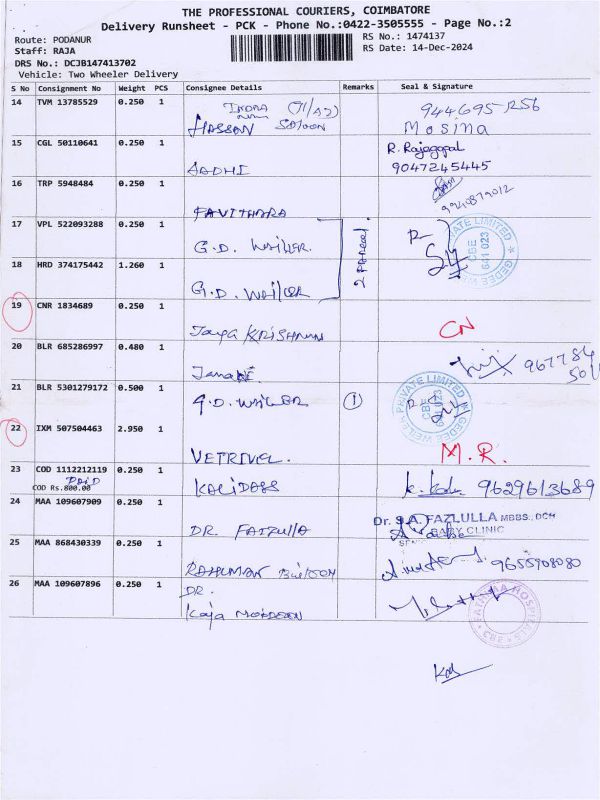 THE PROFESSIONAL COURIERS, COIMBATORE
Delivery Runsheet - PCK - Phone No.:0422-3505555 - Page No.:2
Route: PODANUR
Staff: RAJA
DRS No.: DCJB147413702
Vehicle: Two Wheeler Delivery
RS No.: 1474137
RS Date: 14-Dec-2024
S No Consignment No Weight PCS Consignee Details Remarks Seal & Signature
14 TVM 13785529 0.250 1 INDRA
HASSAN
Mosina
15 CGL 50110641 0.250 1 AADHI R. Rajagopal
9047245445
16 TRP 5948484 0.250 1 PAVITHARA 9940879012
17 VPL 522093288 0.250 1 G.D. WEILER 2 Parcel
18 HRD 374175442 1.260 1 G.D. WEILER
GEDEE WEILER PRIVATE LIMITED
CBE
641 023
19 CNR 1834689 0.250 1 Jaya KRISHNAN CN
20 BLR 685286997 0.480 1 Janani
21 BLR 5301279172 0.500 1 G.D. WEILER 1
GEDEE WEILER PRIVATE LIMITED
CBE
641 023
22 IXM 507504463 2.950 1 VETRIVEL. M.R.
23 COD 1112212119 0.250 1 KALIDASS 9629613689
PAID
COD Rs.800.00
24 MAA 109607909 0.250 1 DR. FAIZULLA Dr. S.A. FAZLULLA MBBS., DCH
BABY CLINIC
25 MAA 868430339 0.250 1 RAHUMAN 9655908080
26 MAA 109607896 0.250 1 DR.
Kaja MOIDEEN
FATHIMA HOSPITALS
CBE